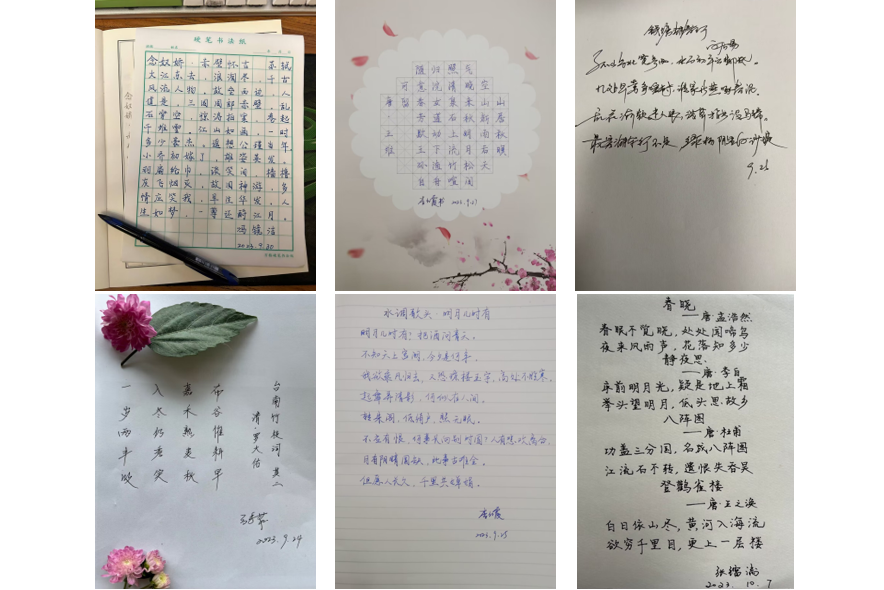 硬笔书法纸
念奴娇·赤壁怀古 苏轼
大江东去,浪淘尽,千古
风流人物,故垒西边,人
道是,三国周郎赤壁,乱
石穿空,惊涛拍岸,卷起
千堆雪。江山如画,一时
多少豪杰。遥想公瑾当年,
小乔初嫁了,雄姿英发。
羽扇纶巾,谈笑间,樯橹
灰飞烟灭,故国神游,多
情应笑我,早生华发,人
生如梦,一尊还酹江月。
2023.9.20
随归照气
可意浣清晚空
唐留春女泉来山山
·芳莲石秋新居
王歇动上时雨秋
维王下流月后暝
孙渔竹松天
自舟喧间
2023.9.21
钱塘湖春行
白居易
孤山寺北贾亭西,水面初平云脚低。
几处早莺争暖树,谁家新燕啄春泥。
乱花渐欲迷人眼,浅草才能没马蹄。
最爱湖东行不足,绿杨阴里白沙堤
9.23
台南竹枝词 其二
清·罗大佑
布谷催耕早
嘉禾熟更秋
入冬仍秀实
一岁两丰收
2023.9.24
水调歌头·明月几时有
明月几时有?把酒问青天。
不知天上宫阙,今夕是何年。
我欲乘风归去,又恐琼楼玉宇,高处不胜寒。
起舞弄清影,何似在人间。
转朱阁,低绮户,照无眠。
不应有恨,何事长向别时圆?人有悲欢离合,
月有阴晴圆缺,此事古难全。
但愿人长久,千里共婵娟。
2023.9.25
春晓
——唐·孟浩然
春眠不觉晓,处处闻啼鸟
夜来风雨声,花落知多少
静夜思
——唐·李白
床前明月光,疑是地上霜
举头望明月,低头思故乡
八阵图
——唐·杜甫
功盖三分国,名成八阵图
江流石不转,遗恨失吞吴
登鹳雀楼
——唐·王之涣
白日依山尽,黄河入海流
欲穷千里目,更上一层楼
2023.10.7